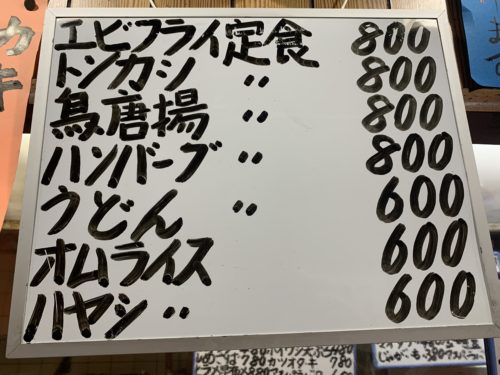 エビフライ定食 800
トンカツ 〃 800
鳥唐揚 〃 800
ハンバーグ 〃 800
うどん 〃 600
オムライス 600
ハヤシ 〃 600